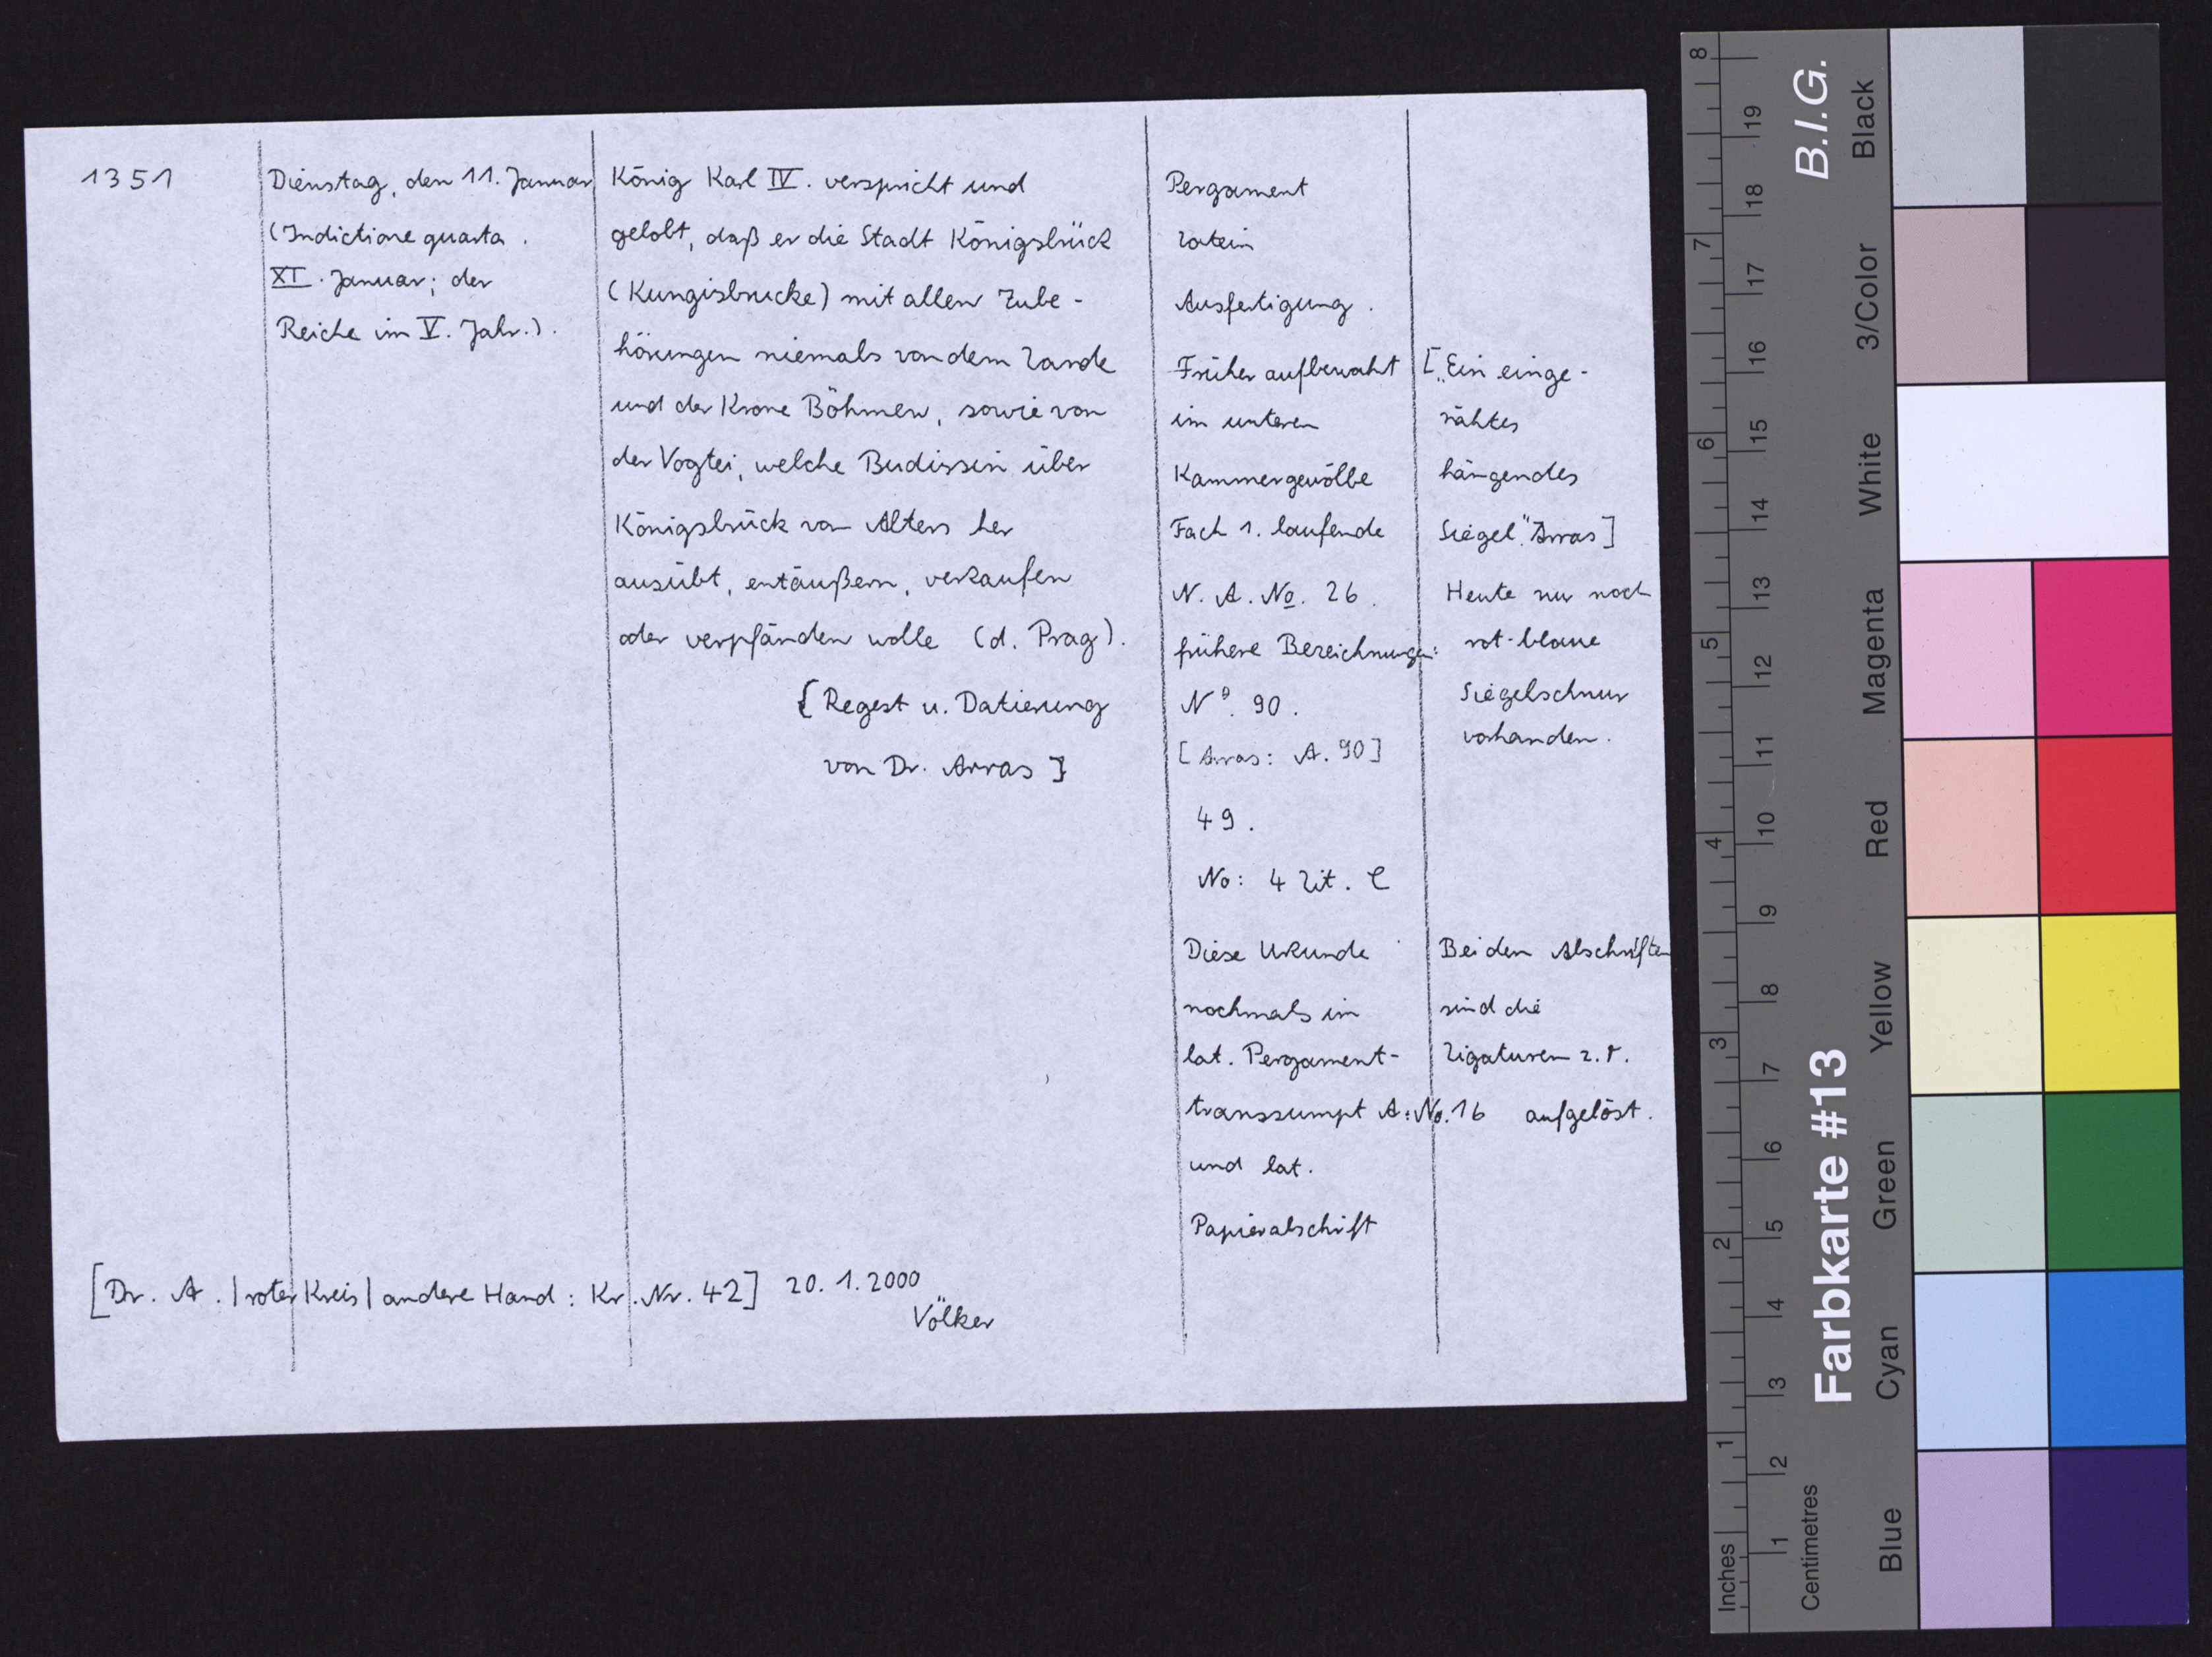 1351
Dienstag, den 11. Januar
(Indictione quarta.
XI. Januar; der
Reiche im V. Jahr.).
König Karl IV. verspricht und
gelobt, daß er die Stadt Königsbrück
(Kungisbrucke) mit allen Zube-
hörungen niemals von dem Lande
und der Krone Böhmen, sowie von
der Vogtei, welche Budissin über
Königsbrück von Alters her
ausübt, entäußern, verkaufen
oder verpfänden wolle (d. Prag).
[Regest u. Datierung
von Dr. Arras]
Pergament
Latein
Ausfertigung.
Früher aufbewahrt
im unteren
Kammergewölbe
Fach 1. laufende
N. A. No. 26.
frühere Bezeichnungen:
No. 90.
[Arras: A. 90]
49.
No: 4 Lit. C
Diese Urkunde
nochmals im
lat. Pergament-
transsumpt A: No. 16
und lat.
Papierabschrift
[„Ein einge-
nähtes
hängendes
Siegel." Arras]
Heute nur noch
rot-blaue
Siegelschnur
vorhanden.
Bei den Abschriften
sind die
Ligaturen z. T.
aufgelöst.
[Dr. A. | roter Kreis | andere Hand: Kr. Nr. 42] 20.1.2000
Völker
B.I.G.
Farbkarte #13
Black
3/Color
White
Magenta
Red
Yellow
Green
Cyan
Blue
8
7
6
5
4
3
2
1
Inches
19
18
17
16
15
14
13
12
11
10
9
8
7
6
5
4
3
2
1
Centimetres